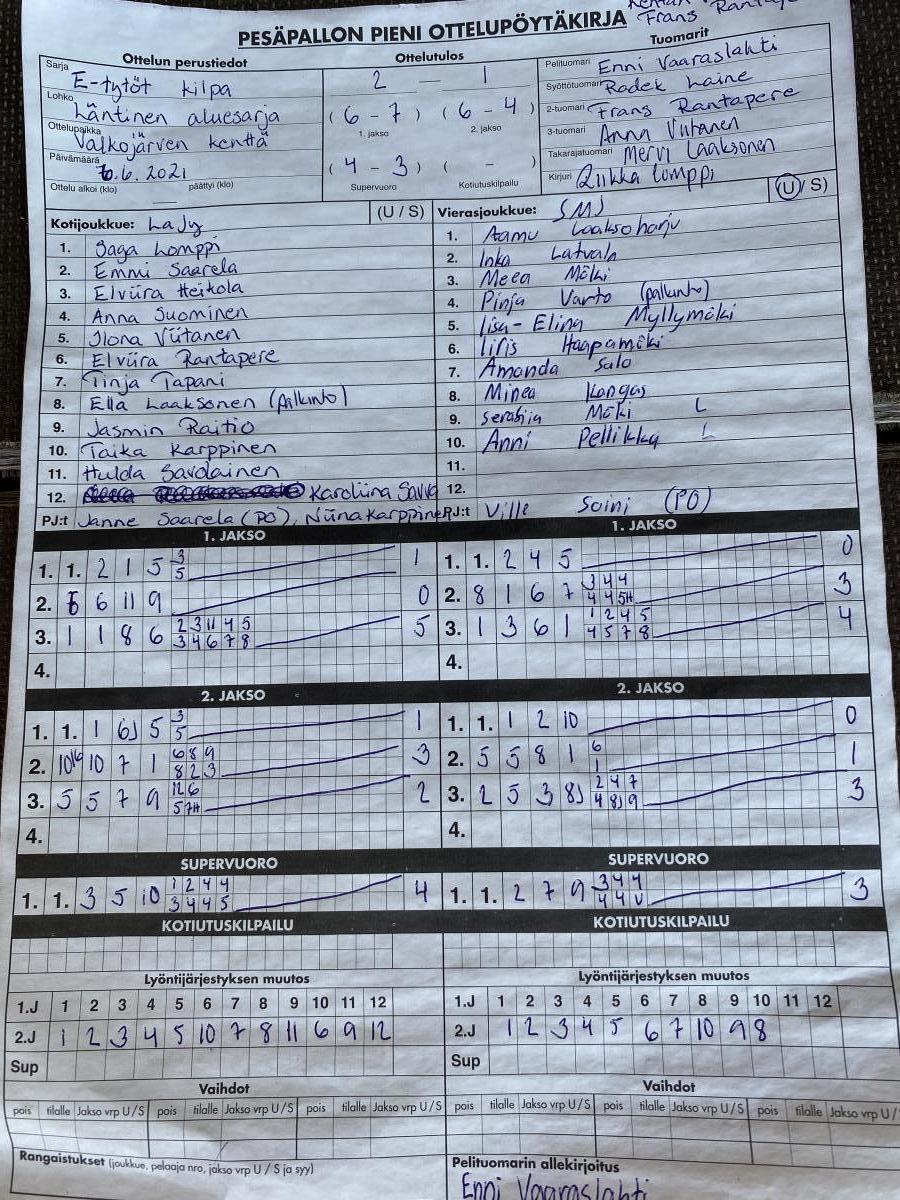 Frans Rantape
PESÄPALLON PIENI OTTELUPÖYTÄKIRJA
Ottelun perustiedot
Sarja E-tytöt kilpa
Lohko Läntinen aluesarja
Ottelupaikka Valkojärven kenttä
Päivämäärä 10.6.2021
Ottelu alkoi (klo) päättyi (klo)
Ottelutulos
2 — 1
(6 - 7) (6 - 4)
1. jakso 2. jakso
(4 - 3) ( - )
Supervuoro Kotiutuskilpailu
Tuomarit
Pelituomari Enni Vaaraslahti
Syöttötuomari Radek Laine
2-tuomari Frans Rantapere
3-tuomari Anna Viitanen
Takarajatuomari Mervi Laaksonen
Kirjuri Riikka Lomppi
Kotijoukkue: LaJy (U / S)
1. Saga Lomppi
2. Emmi Saarela
3. Elviira Heikola
4. Anna Suominen
5. Ilona Viitanen
6. Elviira Rantapere
7. Tinja Tapani
8. Ella Laaksonen (pallunto)
9. Jasmin Raitio
10. Taika Karppinen
11. Hulda Savolainen
12. Karoliina Savva
PJ:t Janne Saarela (PO), Niina Karppinen
Vierasjoukkue: SMJ (U / S)
1. Aamu Laaksoharju
2. Inka Latvala
3. Meea Mäki
4. Pinja Varto (pallunto)
5. Iisa-Elina Myllymäki
6. Iiris Haapamäki
7. Amanda Salo
8. Minea Kangas
9. Serafiia Mäki L
10. Anni Pellikka L
11.
12.
PJ:t Ville Soini (PO)
1. JAKSO
1. 1. 2 1 5 3 1
5
2. 5 6 11 9 0
3. 1 1 8 6 2 3 11 4 5 5
3 4 6 7 8
4.
1. JAKSO
1. 1. 2 4 5 0
2. 8 1 6 7 3 4 4 3
4 4 5H
3. 1 3 6 1 1 2 4 5 4
4 5 7 8
4.
2. JAKSO
1. 1. 1 6J 5 3 1
5
2. 10 10 7 1 6 8 9 3
8 2 3
3. 5 5 7 9 12 6 2
5 7H
4.
2. JAKSO
1. 1. 1 2 10 0
2. 5 5 8 1 6 1
1
3. 2 5 3 8J 2 4 7 3
4 8J 9
4.
SUPERVUORO
1. 1. 3 5 10 1 2 4 4 4
3 4 4 5
SUPERVUORO
1. 1. 2 7 9 3 4 4 3
4 4 U
KOTIUTUSKILPAILU
KOTIUTUSKILPAILU
Lyöntijärjestyksen muutos
1.J 1 2 3 4 5 6 7 8 9 10 11 12
2.J 1 2 3 4 5 10 7 8 11 6 9 12
Sup
Lyöntijärjestyksen muutos
1.J 1 2 3 4 5 6 7 8 9 10 11 12
2.J 1 2 3 4 5 6 7 10 9 8
Sup
Vaihdot
pois tilalle Jakso vrp U / S pois tilalle Jakso vrp U / S pois tilalle Jakso vrp U / S
Vaihdot
pois tilalle Jakso vrp U / S pois tilalle Jakso vrp U / S pois tilalle Jakso vrp U /
Rangaistukset (joukkue, pelaaja nro, jakso vrp U / S ja syy)
Pelituomarin allekirjoitus
Enni Vaaraslahti